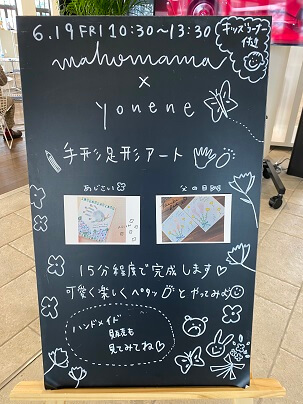 6.19 FRI 10:30~13:30
キッズコーナー
付き
mahomama
×
yonene
手形足形アート
あじさい
父の日
15分程度で完成します♡
可愛く楽しくペタッとやってみよ
ハンドメイド
販売も
見てみてね♡